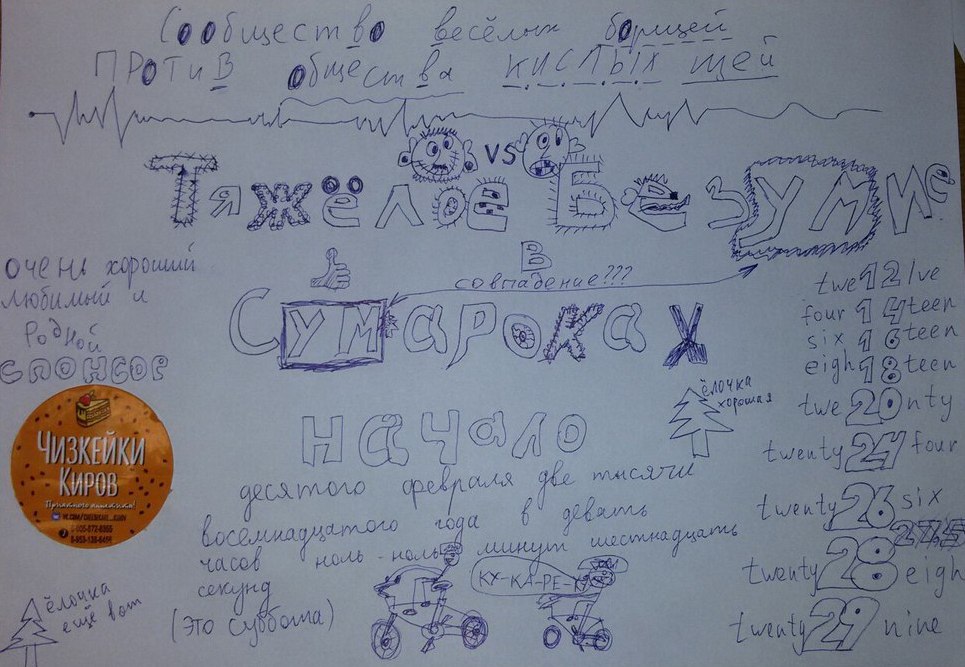 Сообщество весёлых борщей
ПРОТИВ общества кислых щей
vs
Тяжёлое Безумие
В
совпадение???
Сумароках
очень хороший
любимый и
родной
спонсор
ЧИЗКЕЙКИ
КИРОВ
Приятного аппетита!
ёлочка
хорошая
начало
десятого февраля две тысячи
восемнадцатого года в девять
часов ноль-ноль минут шестнадцать
секунд
(это суббота)
КУ-КА-РЕ-
ёлочка
ещё вот
twe12lve
four14teen
six16teen
eigh18teen
twe20nty
twenty24four
twenty26six
27.5
twenty28eigh
twenty29nine